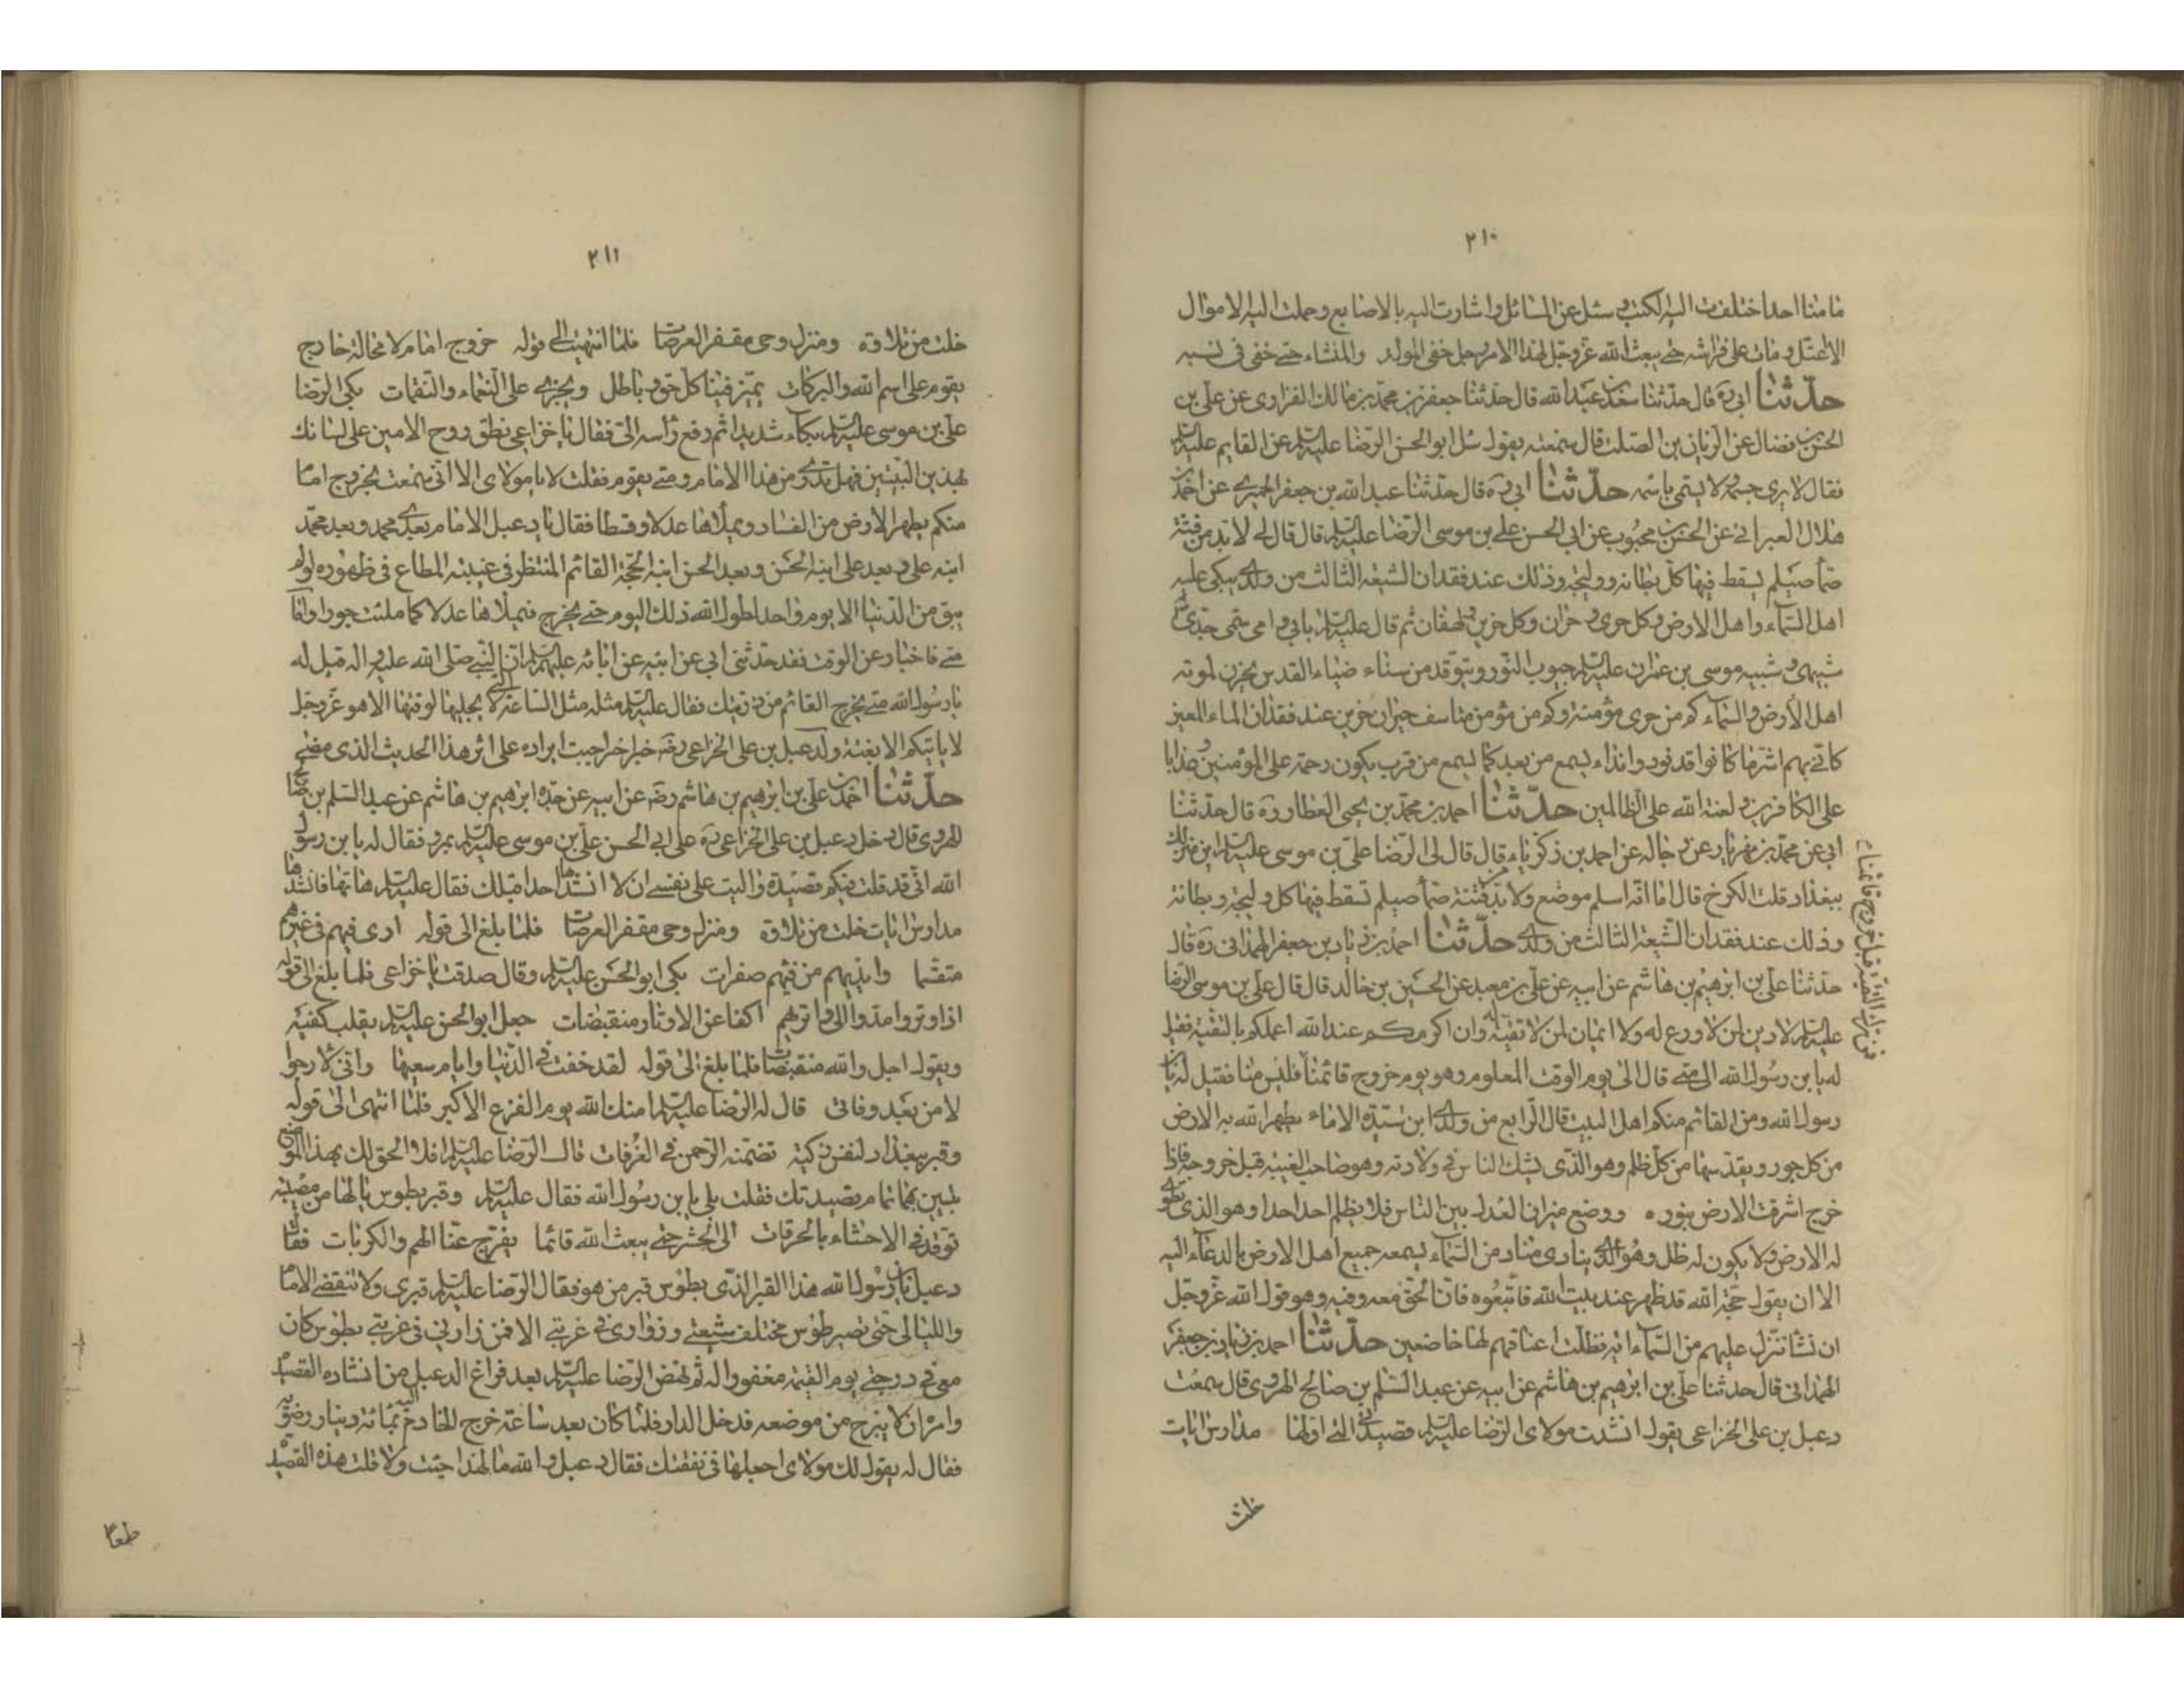 ٢١٠
مامنا احد اختلفت اليه الكتب و سئل عن المسائل و اشارت اليه بالاصابع و حملت اليه الاموال
الا اعتل و مات على فراشه حتى يبعث الله عزوجل لهذا الامر رجل خفى المولد و المنشاء حتى خفى فى نسبه
حدّثنا ابى ره قال حدثنا سعد بن عبد الله قال حدثنا جعفر بن محمد بن مالك الفزارى عن على بن
الحسن بن فضال عن الريان بن الصلت قال سمعته يقول سئل ابو الحسن الرضا عليه السلم عن القايم عليه السلم
فقال لا يرى جسمه و لا يسمى باسمه حدّثنا ابى ره قال حدثنا عبد الله بن جعفر الحميرى عن احمد بن
هلال العبرائى عن الحسن بن محبوب عن ابى الحسن على بن موسى الرضا عليه السلم قال قال لى لا بد من فتنة
صمّاء صيلم يسقط فيها كل بطانه و وليجه و ذلك عند فقدان الشيعه الثالث من ولدى يبكى عليه
اهل السماء و اهل الارض و كل حرى و حران و كل حزين و لهفان ثم قال عليه السلم بابى و امى سمى جدى
شبيهى و شبيه موسى بن عمران عليه السلم جيوب النور و يتوقد من سناء ضياء القدس يحزن لموته
اهل الارض و السماء كم من حرى مؤمنة و كم من مؤمن متاسف حيران حزين عند فقدان الماء المعين
كانى بهم اشر ما كانوا قد نودوا نداء يسمع من بعد كما يسمع من قرب يكون رحمة على المؤمنين و عذابا
على الكافرين و لعنة الله على الظالمين حدّثنا احمد بن محمد بن يحيى العطار ره قال حدثنا
ابى عن محمد بن مهزيار عن رجاله عن احمد بن زكرياء قال قال لى الرضا على بن موسى عليه السلم اين منزلك
ببغداد قلت الكرخ قال اما انه اسلم موضع و لا بد من فتنة صماء صيلم تسقط فيها كل وليجة و بطانة
و ذلك عند فقدان الشيعة الثالث من ولدى حدّثنا احمد بن زياد بن جعفر الهمدانى ره قال
حدثنا على بن ابرهيم بن هاشم عن ابيه عن على بن معبد عن الحسين بن خالد قال قال على بن موسى الرضا
عليه السلم لا دين لمن لا ورع له و لا ايمان لمن لا تقية له و ان اكرمكم عند الله اعملكم بالتقية فقيل
له يا بن رسول الله الى متى قال الى يوم الوقت المعلوم و هو يوم خروج قائمنا فليس منا فقيل له يا بن
رسول الله و من القائم منكم اهل البيت قال الرابع من ولدى ابن سيدة الاماء يطهر الله به الارض
من كل جور و يقدسها من كل ظلم و هو الذى يشك الناس فى ولادته و هو صاحب الغيبه قبل خروجه فاذا
خرج اشرقت الارض بنوره و وضع ميزان العدل بين الناس فلا يظلم احد احدا و هو الذى تطوى
له الارض و لا يكون له ظل و هو الذى ينادى مناد من السماء يسمعه جميع اهل الارض بالدعاء اليه
الا ان يقول حجة الله قد ظهر عند بيت الله فاتبعوه فان الحق معه و فيه و هو قول الله عزوجل
ان نشا ننزل عليهم من السماء اية فظلت اعناقهم لها خاضعين حدّثنا احمد بن زياد بن جعفر
الهمدانى قال حدثنا على بن ابرهيم بن هاشم عن ابيه عن عبد السلم بن صالح الهروى قال سمعت
دعبل بن على الخزاعى يقول انشدت مولاى الرضا عليه السلم قصيدتى التى اولها مدارس ايات
خلت
فمن ترك التقية قبل خروج قائمنا
٢١١
خلت من تلاوة و منزل وحى مقفر العرصات فلما انتهيت الى قوله خروج امام لا محالة خارج
يقوم على اسم الله و البركات يميز فينا كل حق و باطل و يجزى على النعماء و النقمات بكى الرضا
على بن موسى عليه السلم بكاء شديدا ثم رفع راسه الى فقال يا خزاعى نطق روح الامين على لسانك
بهذين البيتين فهل تدرى من هذا الامام و متى يقوم فقلت لا يا مولاى الا انى سمعت بخروج امام
منكم يطهر الارض من الفساد و يملاها عدلا و قسطا فقال يا دعبل الامام بعدى محمد و بعد محمد
ابنه على و بعد على ابنه الحسن و بعد الحسن ابنه الحجة القائم المنتظر فى غيبته المطاع فى ظهوره لو لم
يبق من الدنيا الا يوم واحد لطول الله ذلك اليوم حتى يخرج فيملاها عدلا كما ملئت جورا و اما
متى فاخبار عن الوقت فقد حدثنى ابى عن ابيه عن ابائه عليهم السلم ان النبى صلى الله عليه و اله قيل له
يا رسول الله متى يخرج القائم من ذريتك فقال عليه السلم مثله مثل الساعة التى لا يجليها لوقتها الا هو عزوجل
لا ياتيكم الا بغتة و لدعبل بن على الخزاعى رضه خبر اخر احببت ايراده على اثر هذا الحديث الذى مضى
حدّثنا احمد بن على بن ابرهيم بن هاشم رضه عن ابيه عن جده ابرهيم بن هاشم عن عبد السلم بن صالح
الهروى قال دخل دعبل بن على الخزاعى ره على ابى الحسن على بن موسى عليه السلم بمرو فقال له يا بن رسول
الله انى قد قلت فيكم قصيدة و اليت على نفسى ان لا انشدها احدا قبلك فقال عليه السلم هاتها فانشدها
مدارس ايات خلت من تلاوة و منزل وحى مقفر العرصات فلما بلغ الى قوله ارى فيهم فى غيرهم
متقسما و ايديهم من فيهم صفرات بكى ابو الحسن عليه السلم و قال صدقت يا خزاعى فلما بلغ الى قوله
اذا وتروا مدوا الى واتريهم اكفا عن الاوتار منقبضات جعل ابو الحسن عليه السلم يقلب كفيه
و يقول اجل و الله منقبضات فلما بلغ الى قوله لقد خفت فى الدنيا و ايام سعيها و انى لارجوا
لامن بعد وفاتى قال له الرضا عليه السلم امنك الله يوم الفزع الاكبر فلما انتهى الى قوله
و قبر ببغداد لنفس زكية تضمنه الرحمن فى الغرفات قال الرضا عليه السلم افلا الحق لك بهذا الموضع
بيتين بهما تمام قصيدتك فقلت بلى يا بن رسول الله فقال عليه السلم و قبر بطوس يا لها من مصيبة
توقد فى الاحشاء بالحرقات الى الحشر حتى يبعث الله قائما يفرج عنا الهم و الكربات فقال
دعبل يا بن رسول الله هذا القبر الذى بطوس قبر من هو فقال الرضا عليه السلم قبرى و لا تنقضى الايام
و الليالى حتى تصير طوس مختلف شيعتى و زوارى فى غربتى الا فمن زارنى فى غربتى بطوس كان
معى فى درجتى يوم القيمة مغفورا له ثم نهض الرضا عليه السلم بعد فراغ الدعبل من انشاده القصيدة
و امره ان لا يبرح من موضعه فدخل الدار فلما كان بعد ساعة خرج الخادم اليه بمائة دينار رضوية
فقال له يقول لك مولاى اجعلها فى نفقتك فقال دعبل و الله ما لهذا جئت و لا قلت هذه القصيدة
طمعا